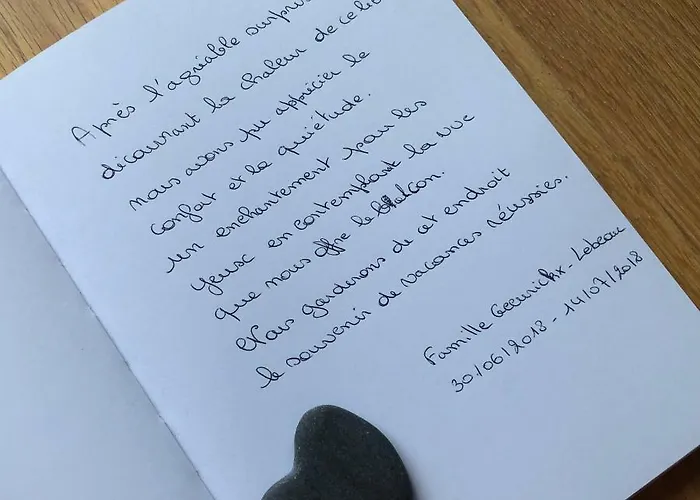 Après l'agréable surprise
découvrant la chaleur de ce lieu
nous avons pu apprécier le
confort et la quiétude.
un enchantement pour les
yeux en contemplant la vue
que nous offre le balcon.
Nous garderons de cet endroit
le souvenir de vacances réussies.
Famille - Lebeau
30/06/2018 - 14/07/2018